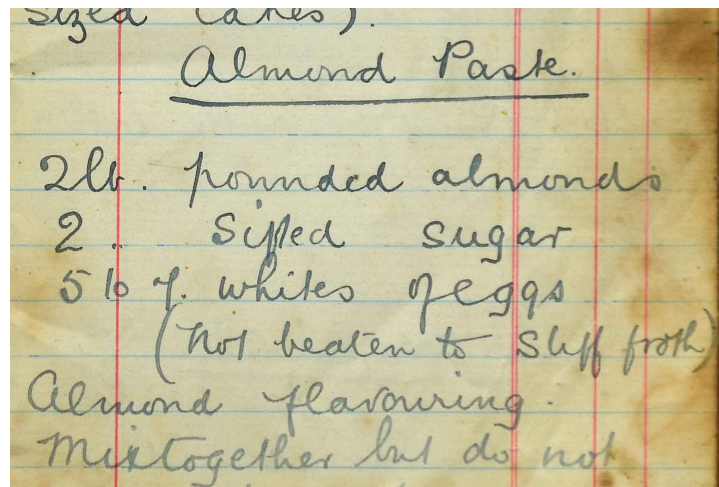 sized cakes).
Almond Paste.
2lb. pounded almonds
2 " Sifted sugar
5 to 7. whites of eggs
(not beaten to stiff froth)
Almond flavouring.
Mix together but do not